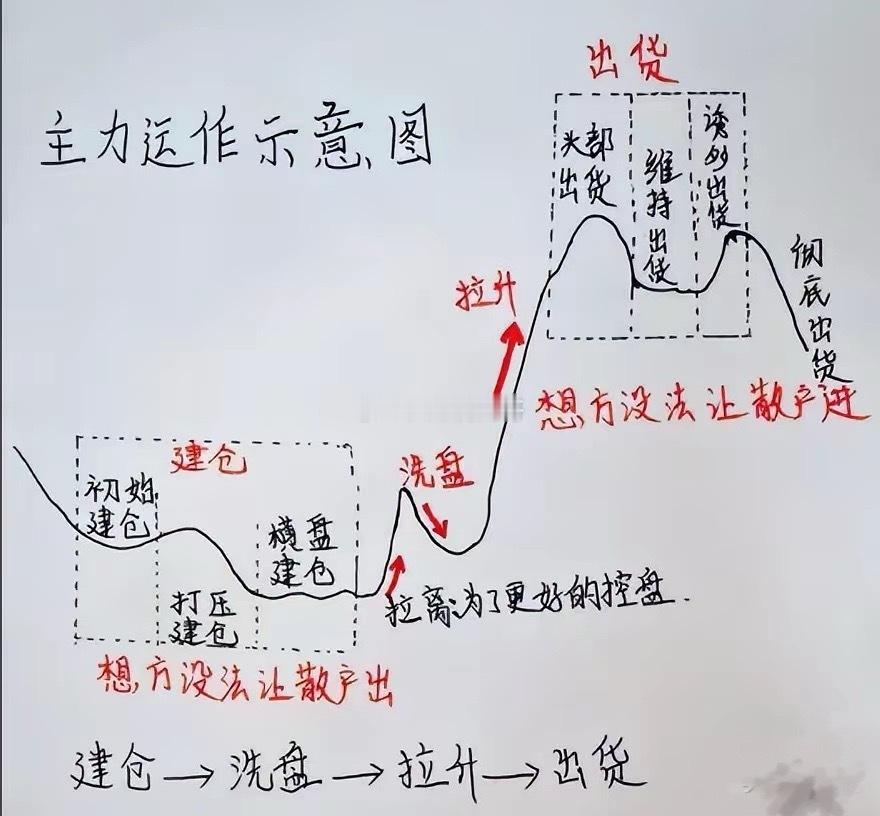 主力运作示意图
出货
头部出货
维持出货
诱多出货
彻底出货
拉升
想方设法让散户进
建仓
初始建仓
打压建仓
横盘建仓
洗盘
拉离:为了更好的控盘.
想方设法让散户出
建仓→洗盘→拉升→出货